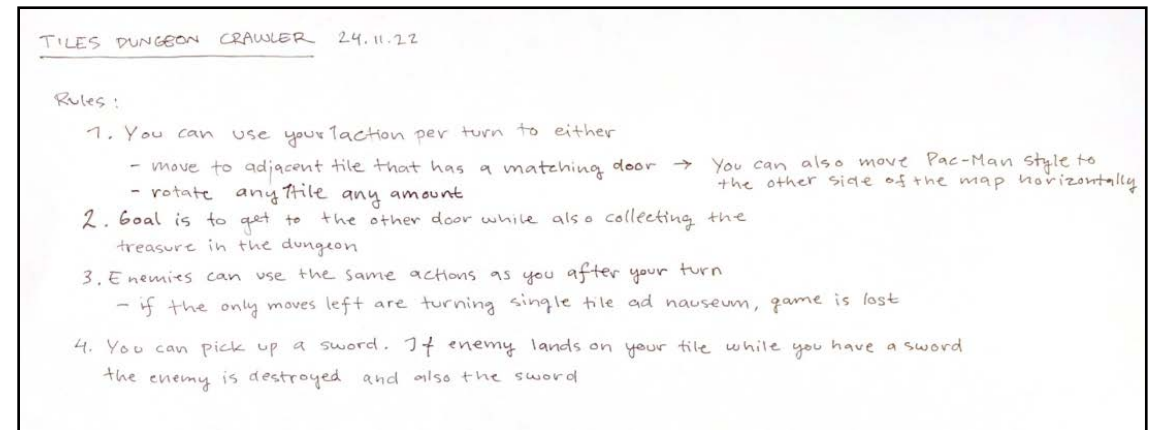 TILES DUNGEON CRAWLER 24.11.22
Rules:
1. You can use your 1 action per turn to either
- move to adjacent tile that has a matching door → You can also move Pac-Man style to
the other side of the map horizontally
- rotate any 1 tile any amount
2. Goal is to get to the other door while also collecting the
treasure in the dungeon
3. Enemies can use the same actions as you after your turn
- if the only moves left are turning single tile ad nauseum, game is lost
4. You can pick up a sword. If enemy lands on your tile while you have a sword
the enemy is destroyed and also the sword